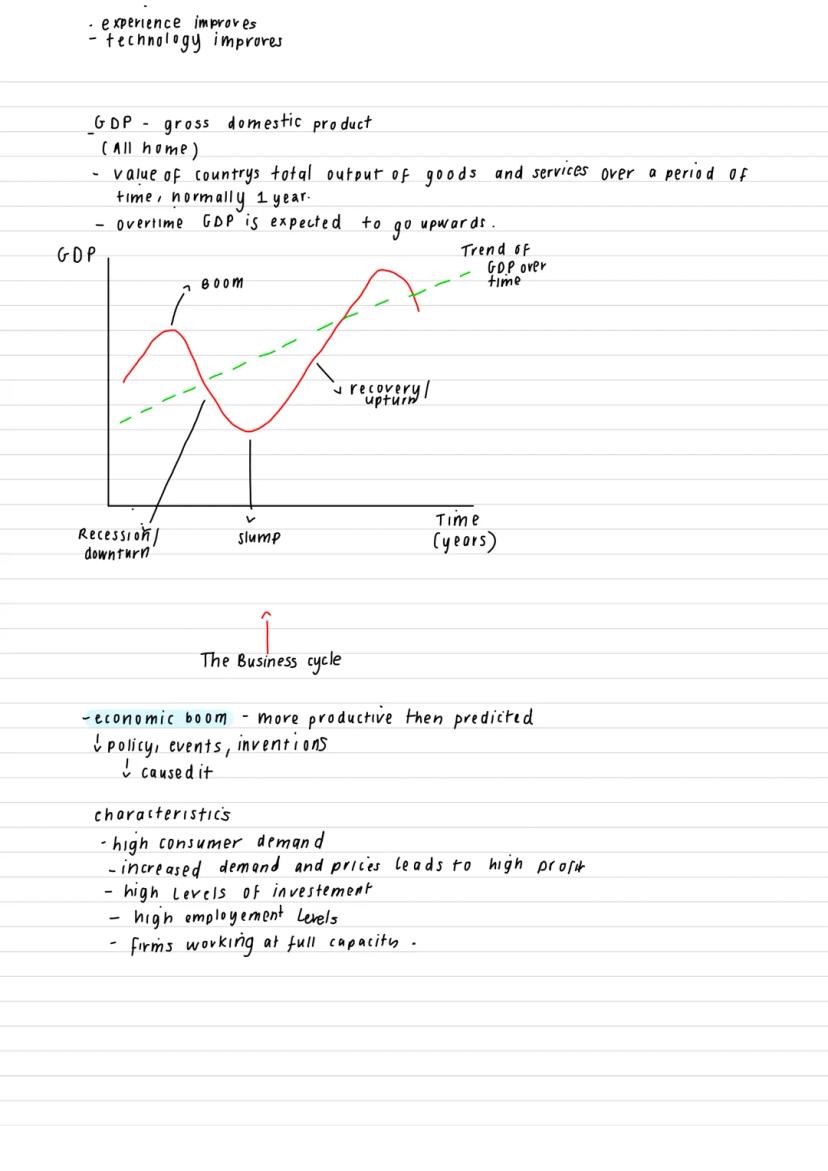 - experience improves
- technology improves
GDP - gross domestic product
(All home)
- value of countrys total output of goods and services over a period of
time, normally 1 year.
- overtime GDP is expected to go upwards.
GDP
Boom
Trend of
GDP over
time
recovery/
upturn
Recession/
downturn
slump
Time
(years)
The Business cycle
- economic boom - more productive then predicted
↓ policy, events, inventions
↓ caused it
characteristics
- high consumer demand
- increased demand and prices leads to high profit
- high levels of investement
- high employement levels
- firms working at full capacity.